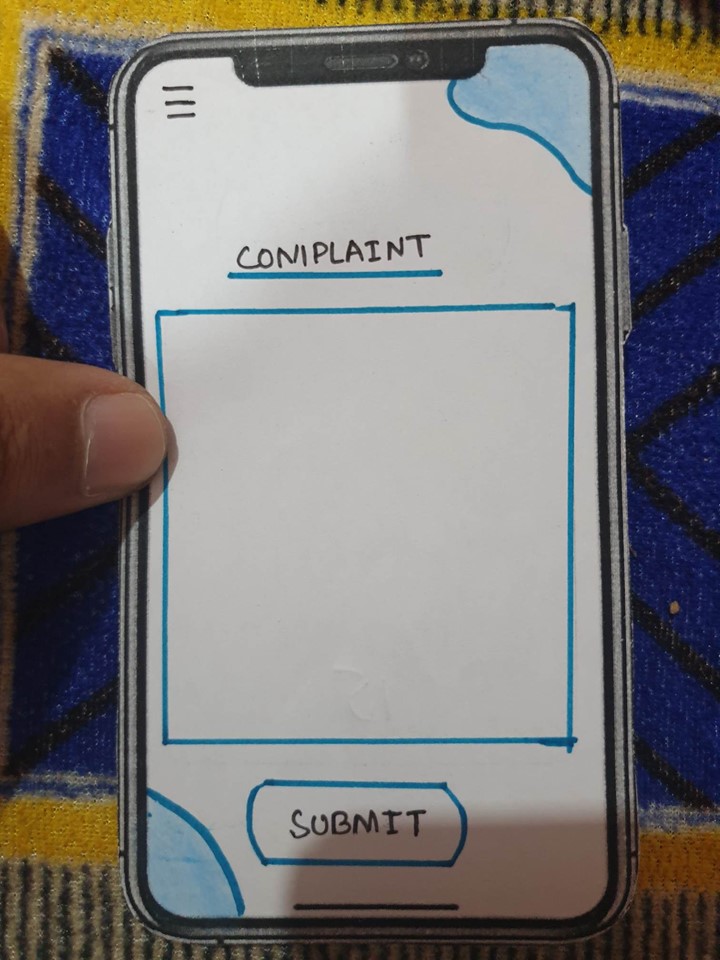 COMPLAINT
SUBMIT